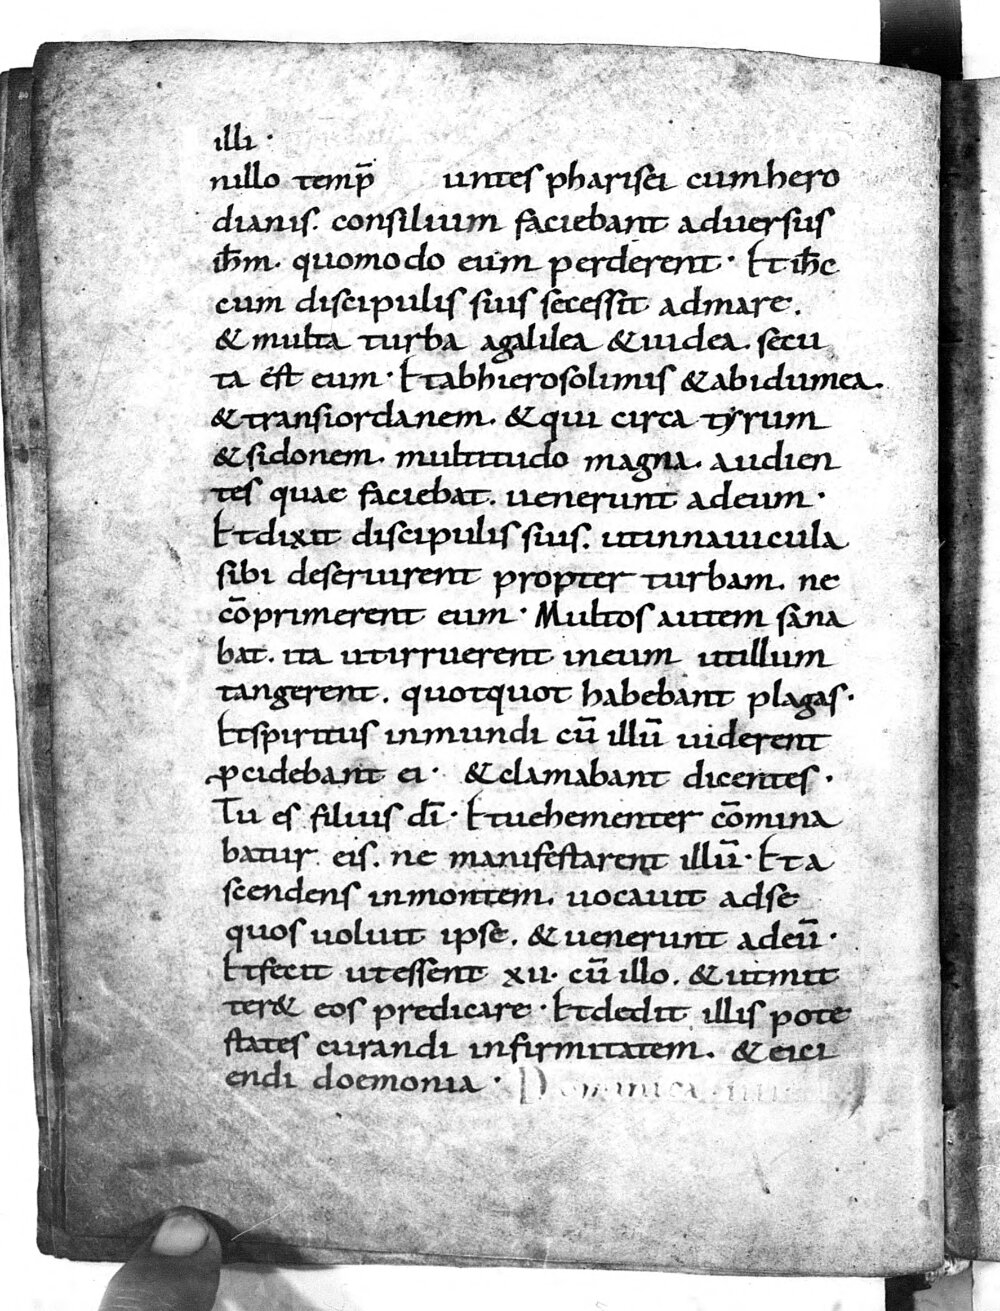 illi·
nillo temp̄ untes pharisei cum hero
dianis. consilium faciebant aduersus
ihm̄. quomodo eum perderent· Et ihc̄
cum discipulis suis secessit ad mare.
& multa turba a galilea & iudea. secu
ta est eum· Et ab hierosolimis & ab idumea.
& transiordanem. & qui circa tyrum
& sidonem. multitudo magna. audien
tes quae faciebat. uenerunt ad eum·
Et dixit discipulis suis. ut in nauicula
sibi deseruirent propter turbam. ne
cōprimerent eum· Multos autem sana
bat. ita ut irruerent in eum ut illum
tangerent. quotquot habebant plagas·
Et spiritus inmundi cū illū uiderent
pcidebant ei· & clamabant dicentes·
Tu es filius dī· Et uehementer cōmina
batur eis. ne manifestarent illū· Et a
scendens in montem. uocauit ad se
quos uoluit ipse. & uenerunt ad eū·
Et fecit ut essent xii· cū illo. & ut mit
ter& eos predicare· Et dedit illis pote
states curandi infirmitatem. & eici
endi doemonia· Dominica